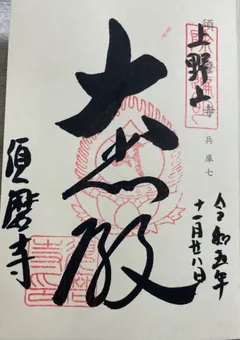 上野山
兵庫七
大悲殿
令和五年
十一月廿八日
須磨寺